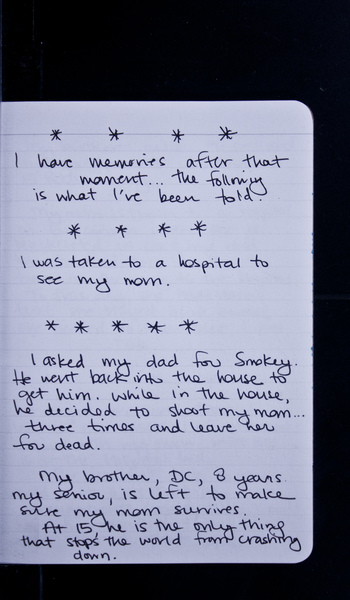 * * * *
I have memories after that
moment... the following
is what I've been told.
* * * *
I was taken to a hospital to
see my mom.
* * * * *
I asked my dad for Smokey.
He went back into the house to
get him. While in the house,
he decided to shoot my mom...
three times and leave her
for dead.
My brother, DC, 8 years
my senior, is left to make
sure my mom survives.
At 15, he is the only thing
that stops the world from crashing
down.